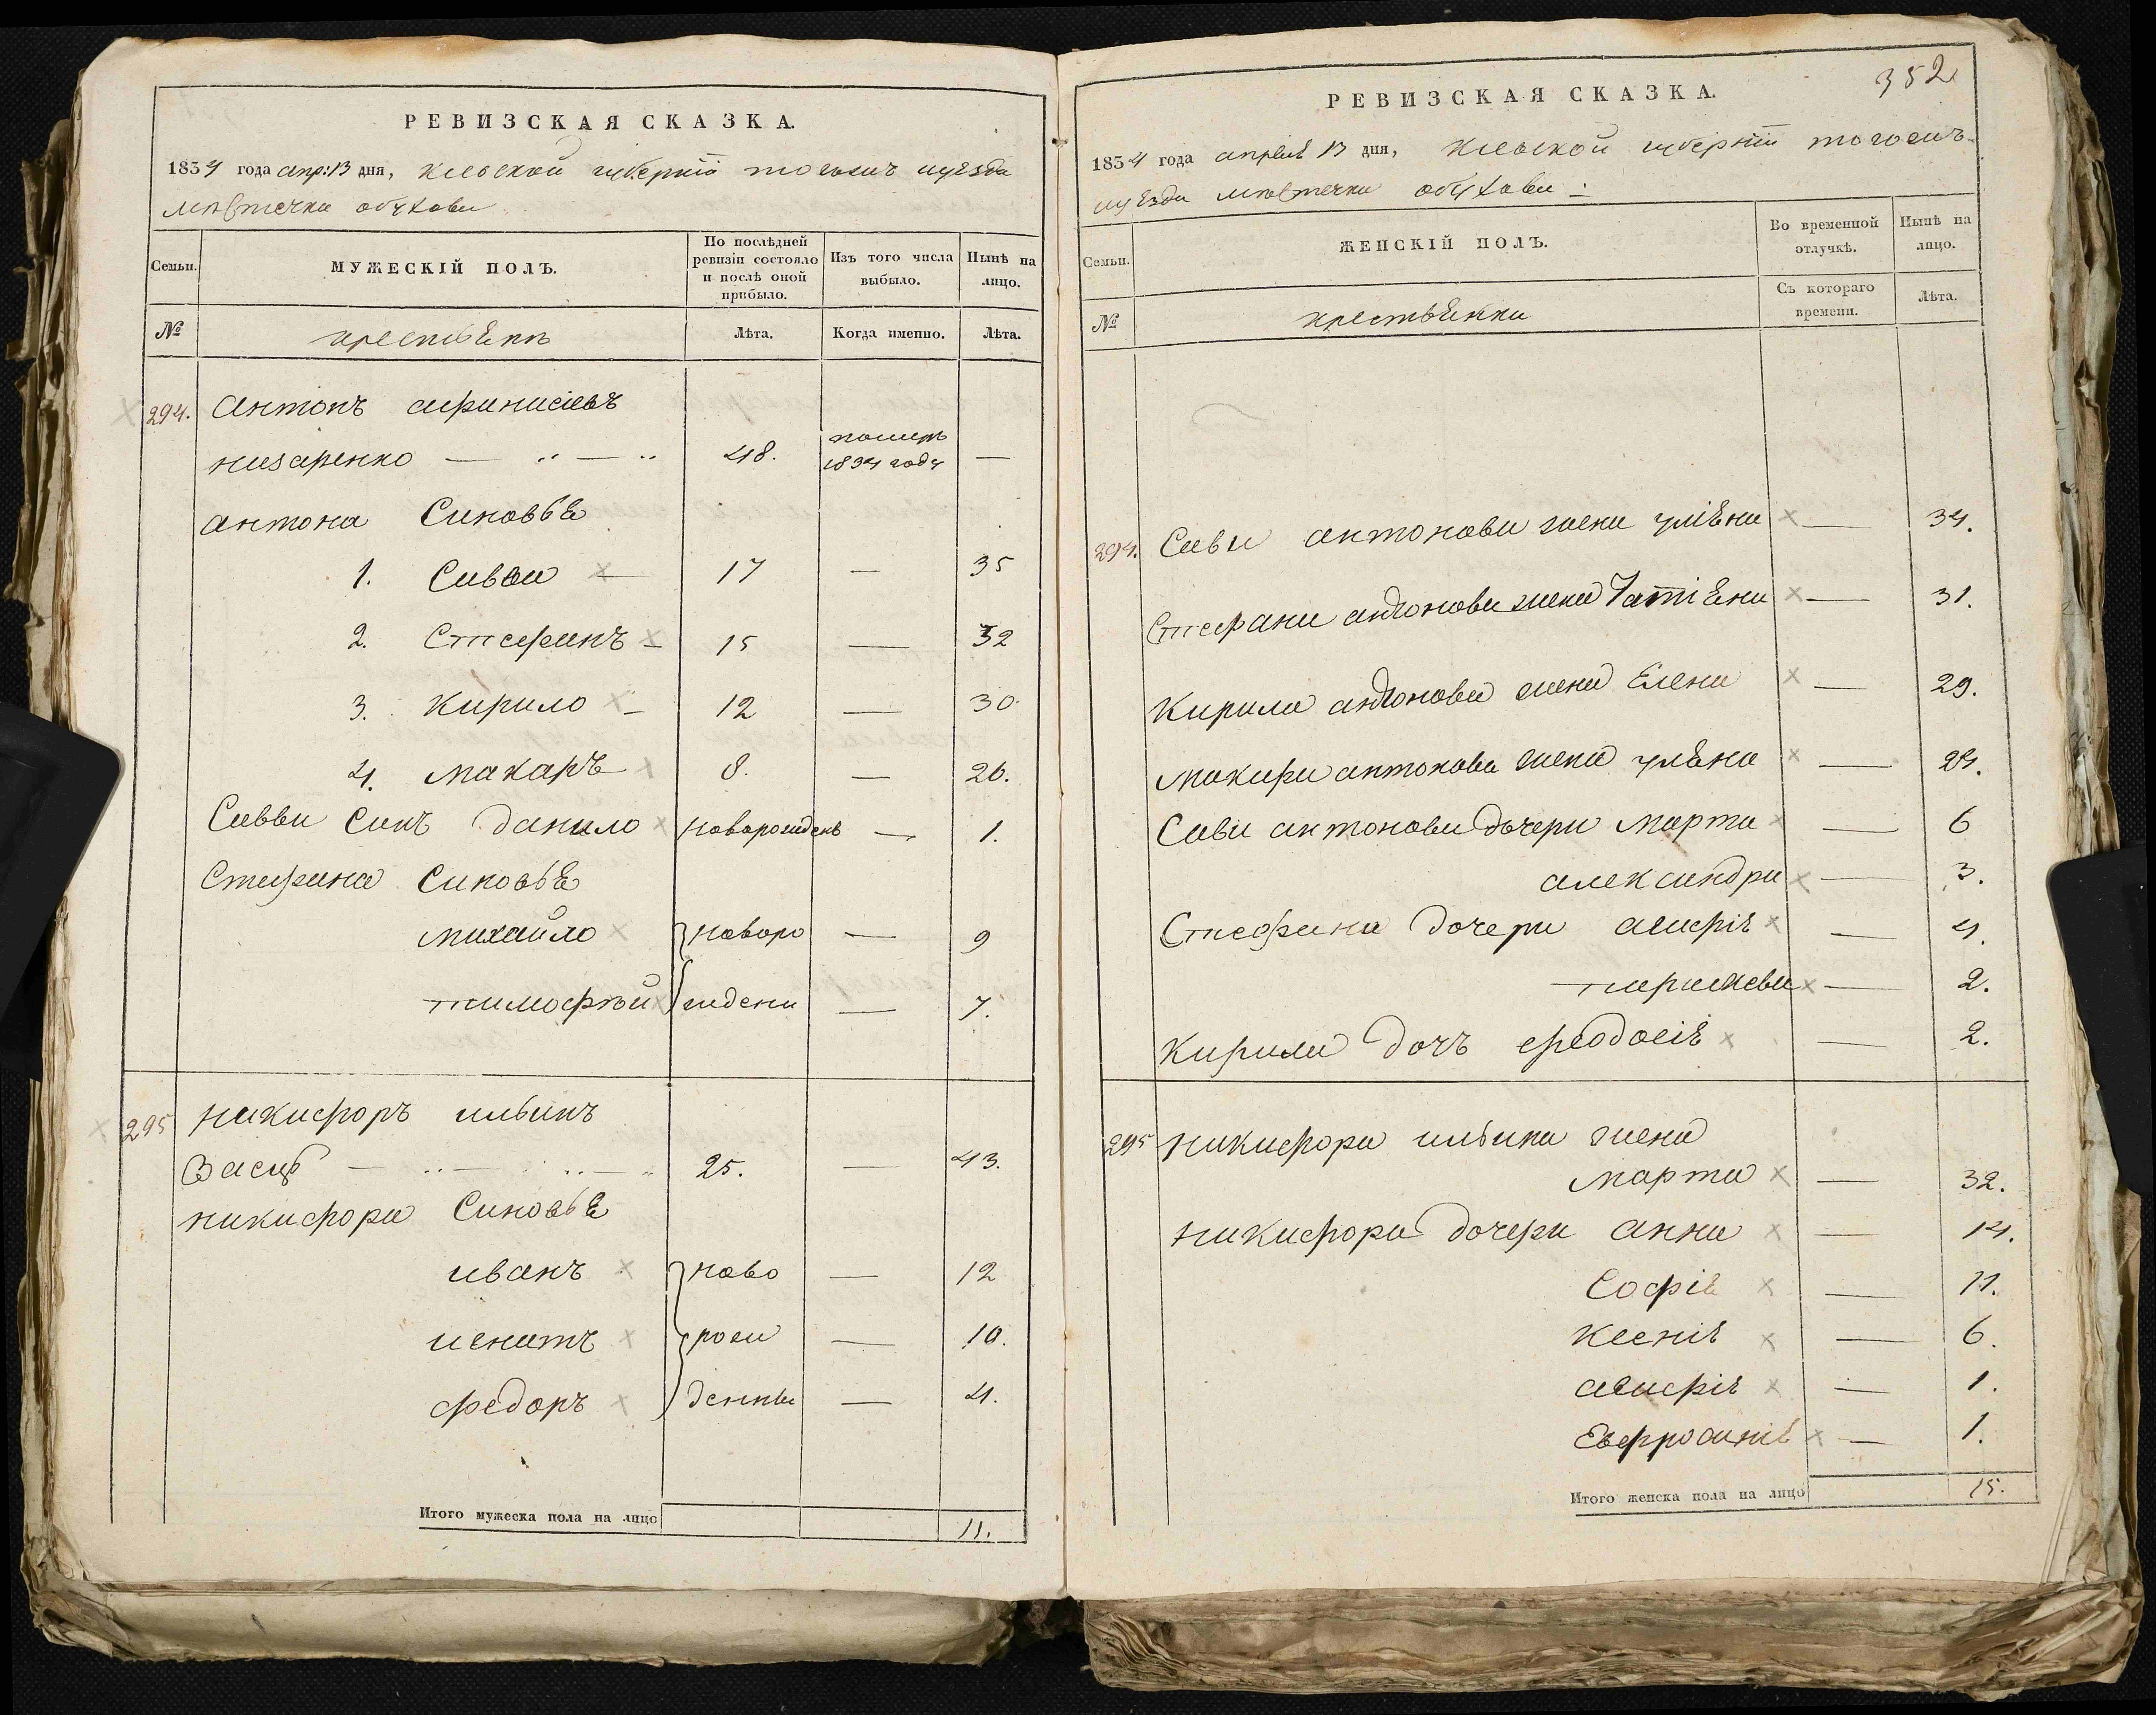 РЕВИЗСКАЯ СКАЗКА.
1834 года апр: 13 дня, Киевской губернiи тогожъ уѣзда
мѣстечка обухова
Семьи.
МУЖЕСКІЙ ПОЛЪ.
По послѣдней ревизіи состояло и послѣ оной прибыло.
Изъ того числа выбыло.
Нынѣ на лицо.
№
крестьѣнѣ
Лѣта.
Когда именно.
Лѣта.
294. Антонъ афанасіевъ
назаренко — 48. 1834 года —
антона Синовьѣ
1. Савва — 17 — 35
2. Стефанъ — 15 — 32
3. Кирило — 12 — 30
4. Макаръ 8. — 26.
Саввы Синъ данило новорожденъ — 1.
Стефана Синовьѣ
михайло новоро — 9
тимофѣй ждени — 7.
295 никифоръ ильинъ
25. — 43.
никифора Синовьѣ
иванъ ново — 12
игнатъ рож — 10.
федоръ денны — 4.
Итого мужеска пола на лицо 11.
352
РЕВИЗСКАЯ СКАЗКА.
1834 года апреля 13 дня, Киевской губернiи тогожъ
уѣзда мѣстечка обухова
Семьи.
ЖЕНСКІЙ ПОЛЪ.
Во временной отлучкѣ.
Нынѣ на лицо.
№
крестьѣнки
Съ котораго времени.
Лѣта.
294. Савы антонова жена улiѣна — 34.
Стефана антонова жена Татiѣна — 31.
Кирила антонова жена Елена — 29.
Макара антонова жена улѣна — 24.
Савы антонова дочери Марта — 6
александра — 3.
Стефана дочери агафiѣ — 4.
параскева — 2.
Кирила дочъ феодосiѣ — 2.
295 никифора ильина жена
марта — 32.
никифора дочери анна — 14.
Софiѣ — 11.
Ксенiѣ — 6.
агафiѣ — 1.
Евфросинiѣ — 1.
Итого женска пола на лицо 15.